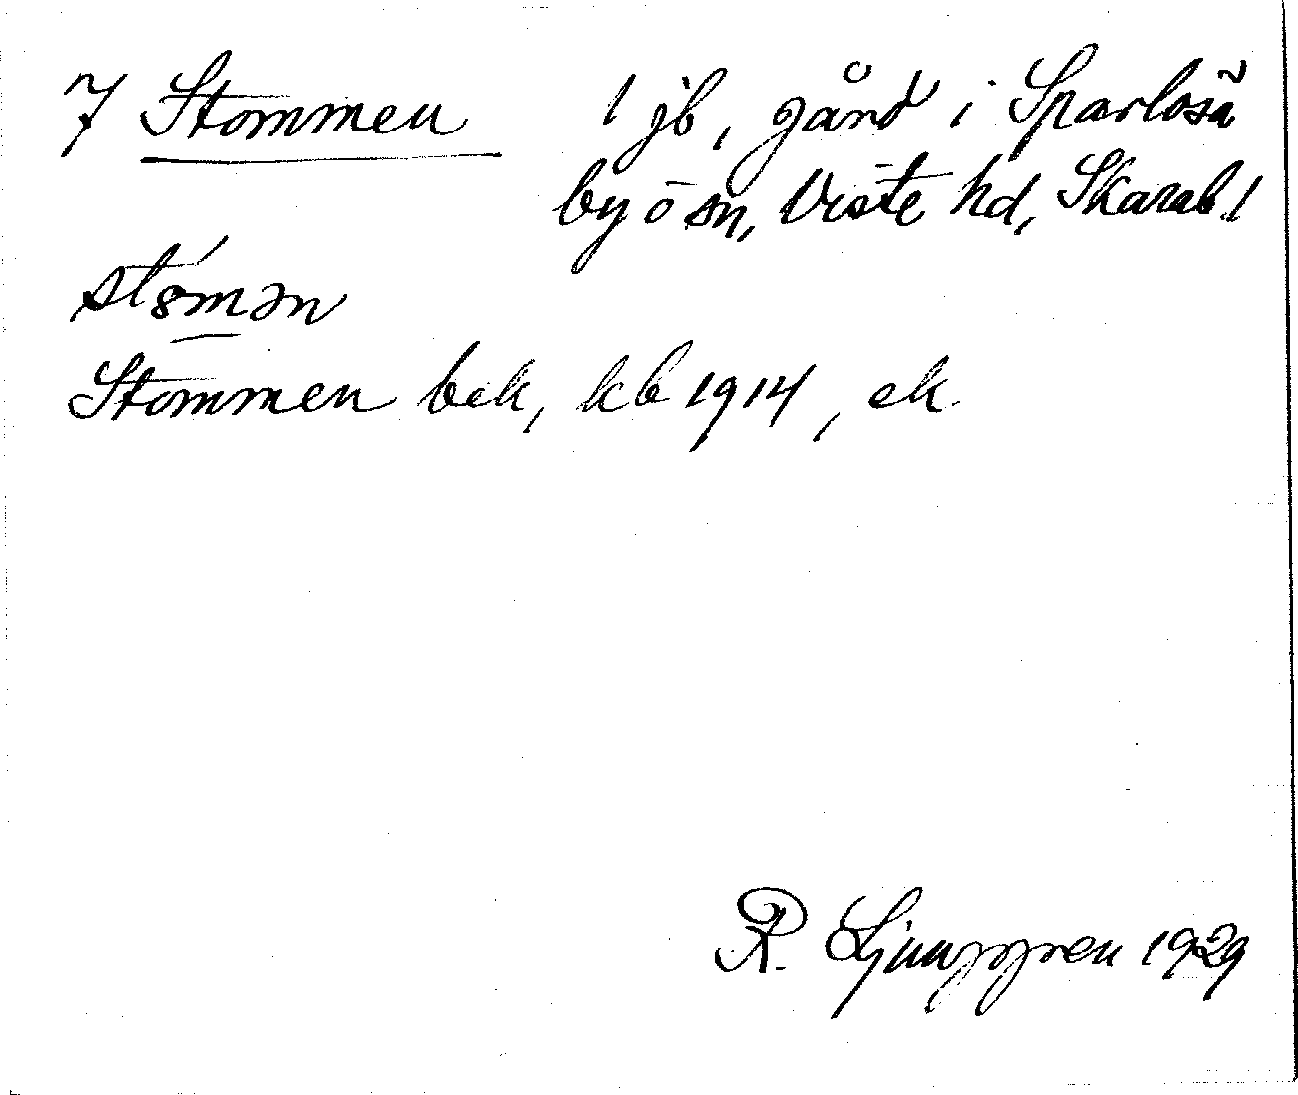 7 Stommen 1 jb, gård i Sparlösa
by o sn, Viste hd, Skarab. l
Stommen bek, kb 1914, ek
R. Ljunggren 1929